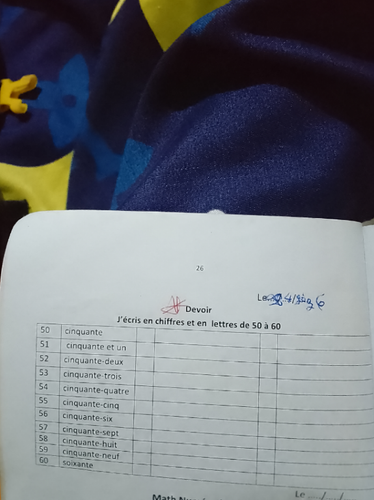 26
Le
Devoir
J'écris en chiffres et en lettres de 50 à 60
50 cinquante
51 cinquante et un
52 cinquante-deux
53 cinquante-trois
54 cinquante-quatre
55 cinquante-cinq
56 cinquante-six
57 cinquante-sept
58 cinquante-huit
59 cinquante-neuf
60 soixante
Le